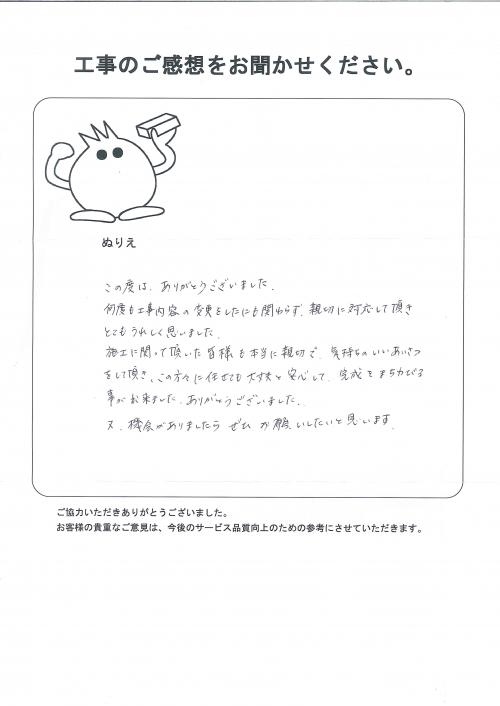 工事のご感想をお聞かせください。
ぬりえ
この度は、ありがとうございました。
何度も工事内容の変更をしたにも関わらず、親切に対応して頂き
とてもうれしく思いました。
施工に関って頂いた皆様も本当に親切で、気持ちのいいあいさつ
をして頂き、この方々に任せても大丈夫と安心して、完成をまちわびる
事が出来ました。ありがとうございました。
又、機会がありましたら ぜひ お願いしたいと思います。
ご協力いただきありがとうございました。
お客様の貴重なご意見は、今後のサービス品質向上のための参考にさせていただきます。